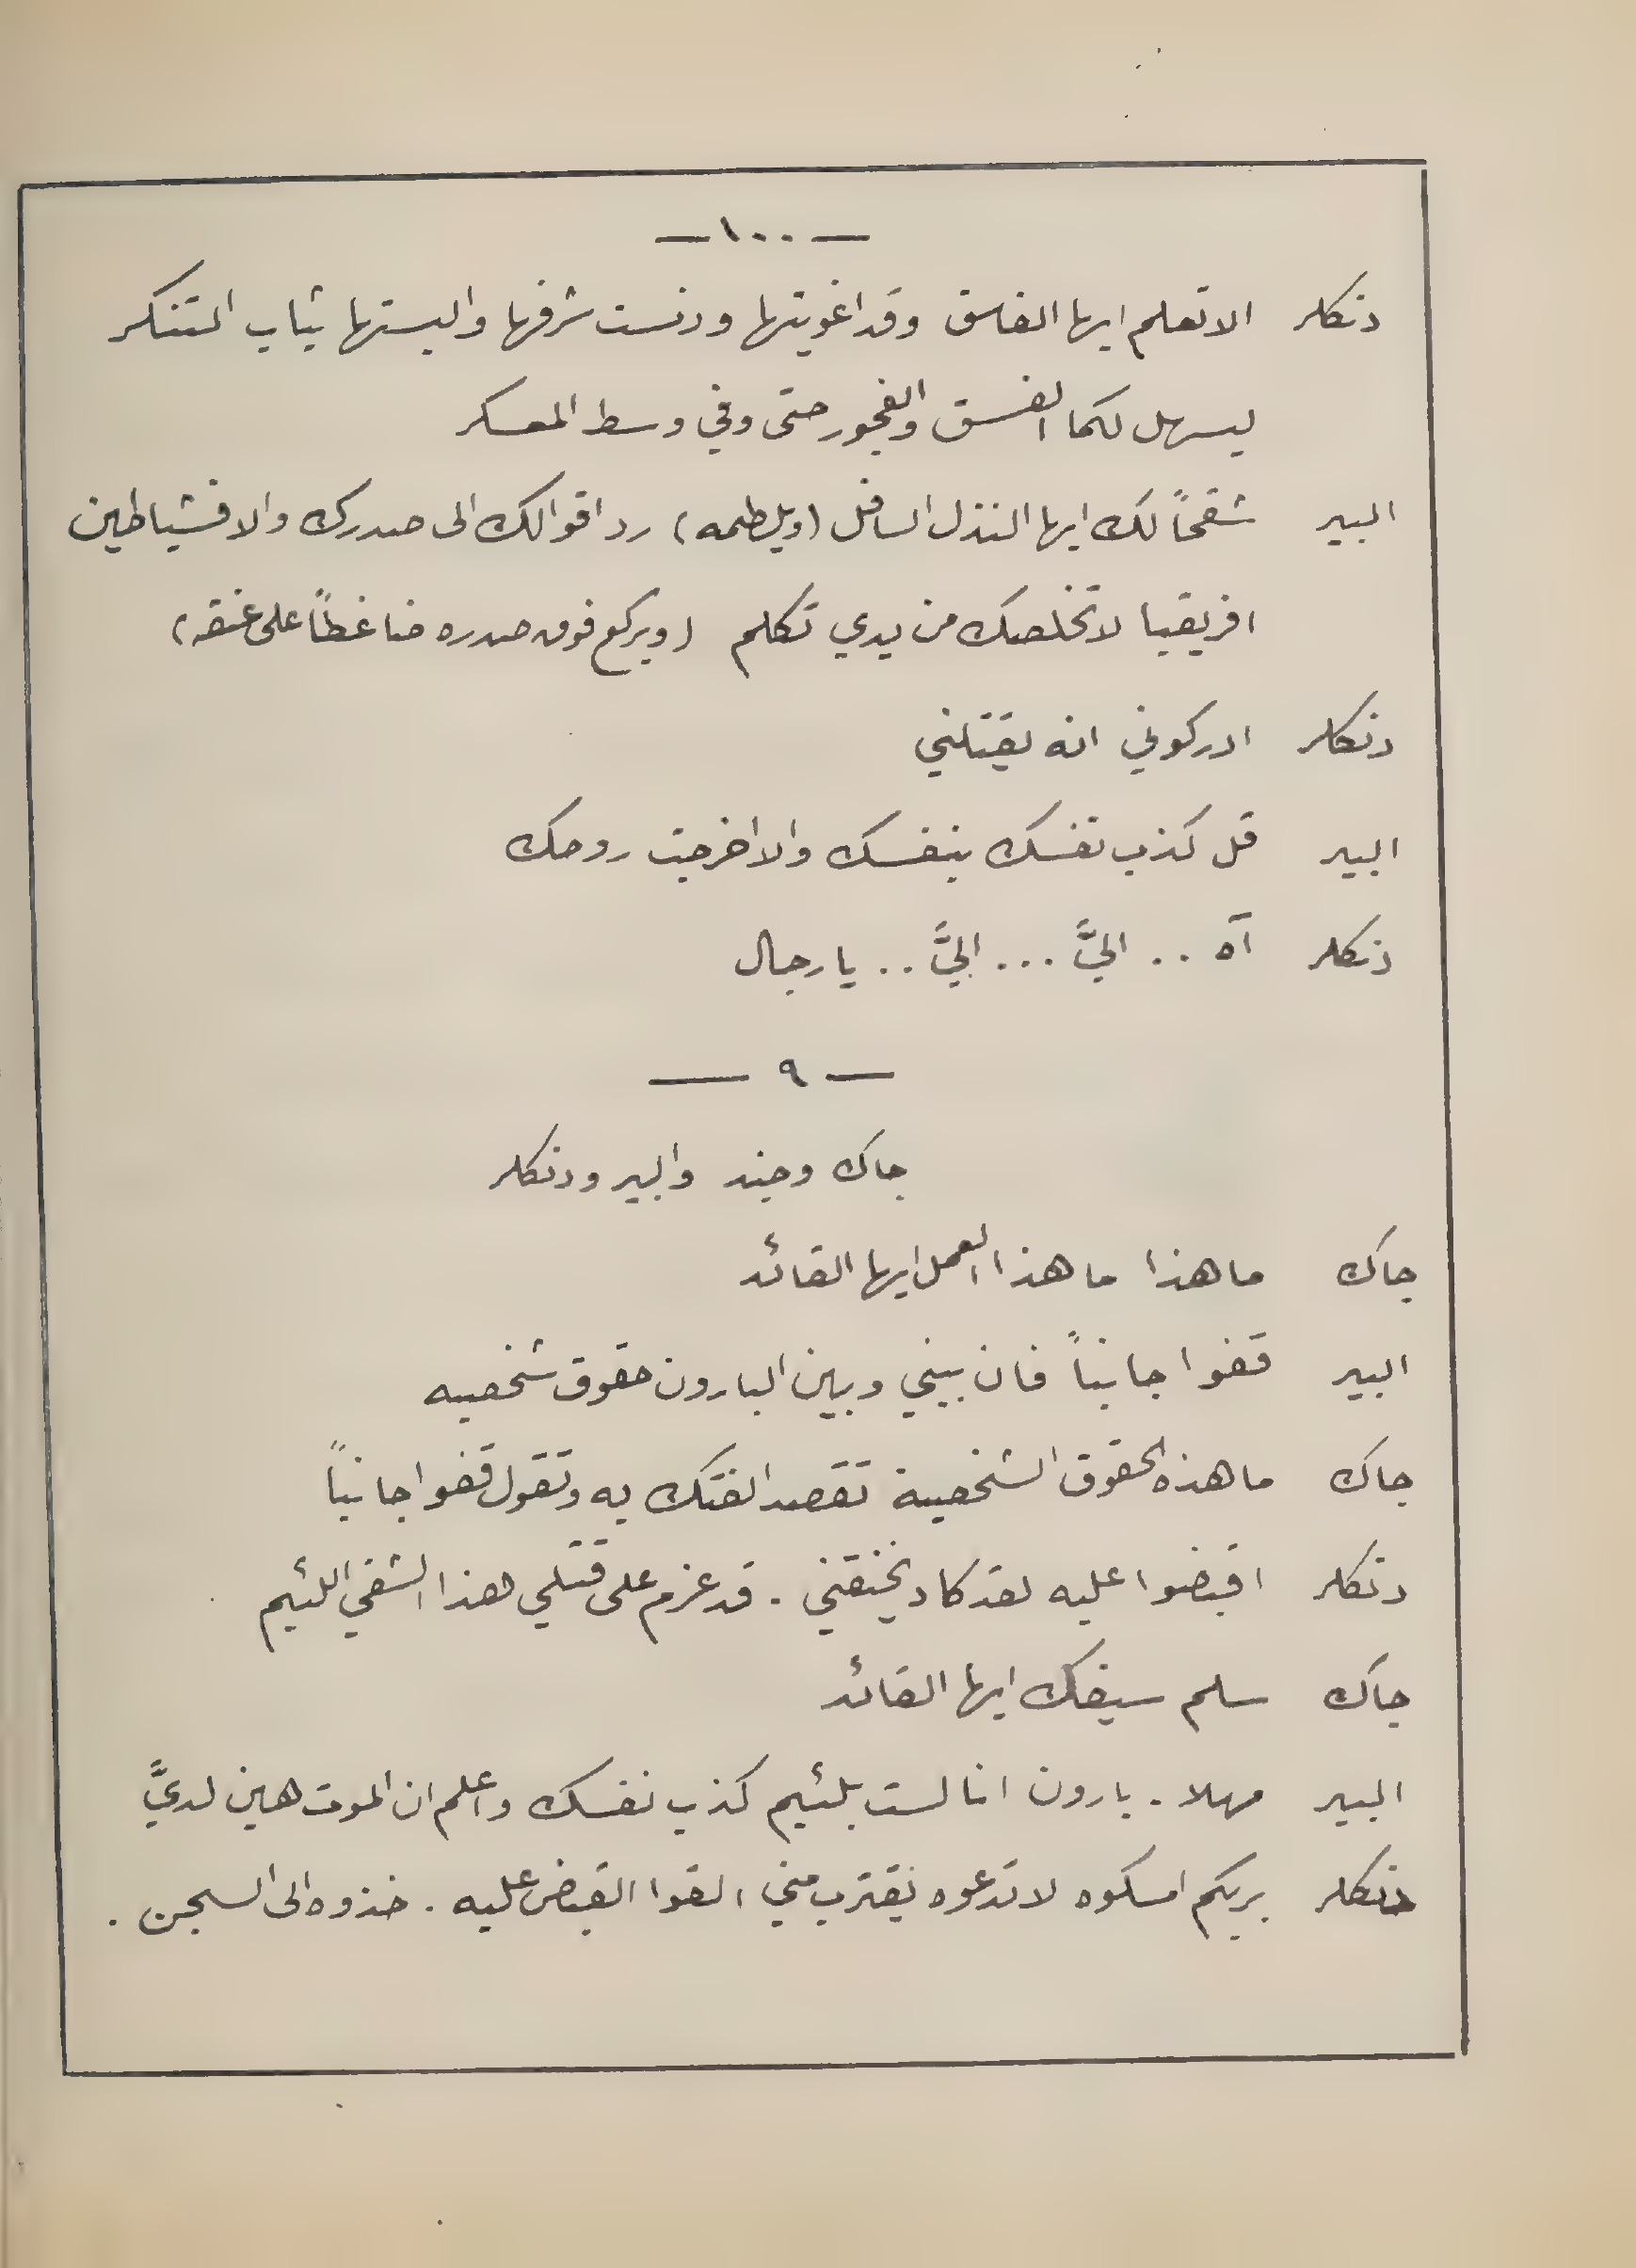 — ١٠٠ —
دنكلر الا تعلم ايها الفاسق وقد اغويتها ودنست شرفها والبستها ثياب المتنكر
ليسهل لكما الفسق والفجور حتى وفي وسط المعسكر
البير شقحاً لك ايها النذل السافل (ويلطمه) رد اقوالك الى صدرك والا فشياطين
افريقيا لا تخلصك من يدي تكلم (ويركع فوق صدره ضاغطاً على عنقه)
دنكلر ادركوني انه يقتلني
البير قل كذب نفسك بنفسك والا اخرجت روحك
دنكلر آه .. اليَّ ... اليَّ .. يا رجال
— ٩ —
جاك وجند والبير ودنكلر
جاك ما هذا ما هذا العمل ايها القائد
البير قفوا جانباً فان بيني وبين البارون حقوق شخصيه
جاك ما هذه الحقوق الشخصية تقصد الفتك به وتقول قفوا جانباً
دنكلر اقبضوا عليه لقد كاد يخنقني . قد عزم على قتلي هذا الشقي اللئيم
جاك سلم سيفك ايها القائد
البير مهلا . بارون انا لست بلئيم كذب نفسك واعلم ان الموت هين لديَّ
دنكلر بربكم امسكوه لا تدعوه يقترب مني ، القوا القبض عليه . خذوه الى السجن .